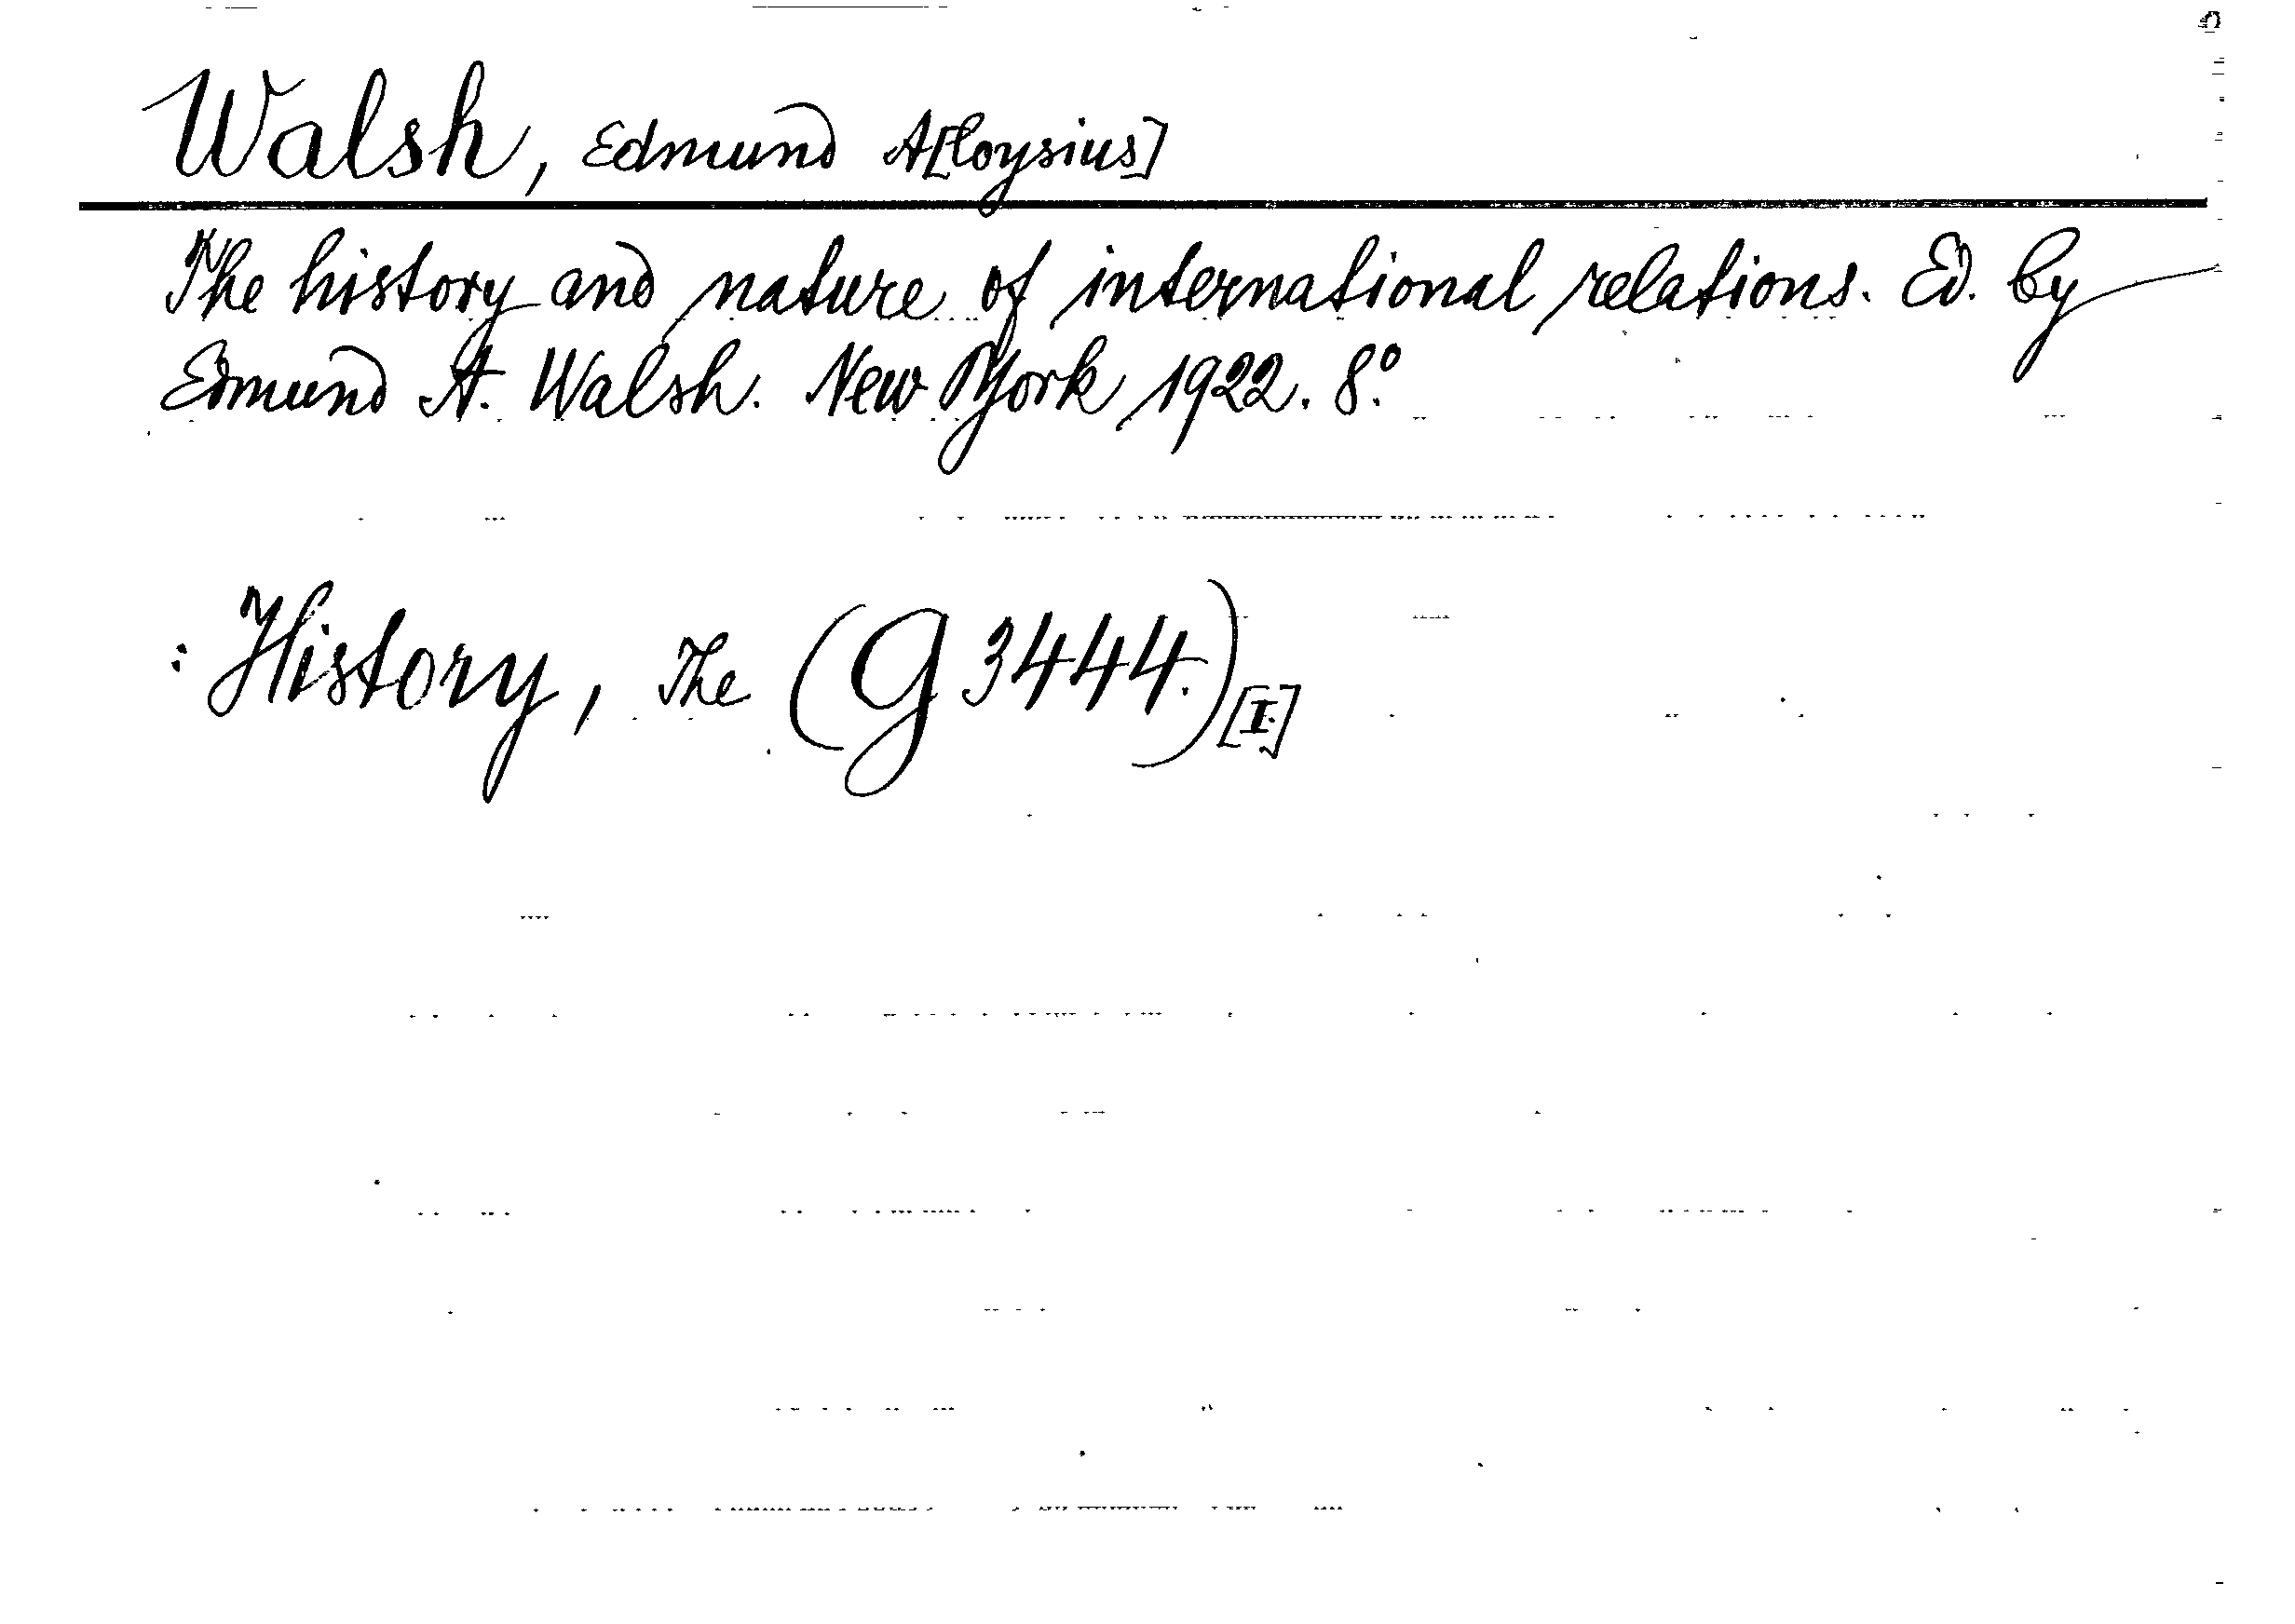 Walsh, Edmund A[loysius]
The history and nature of international relations. Ed. by
Edmund A. Walsh. New York 1922. 8.°
: History, The (G 3444.) [I.]